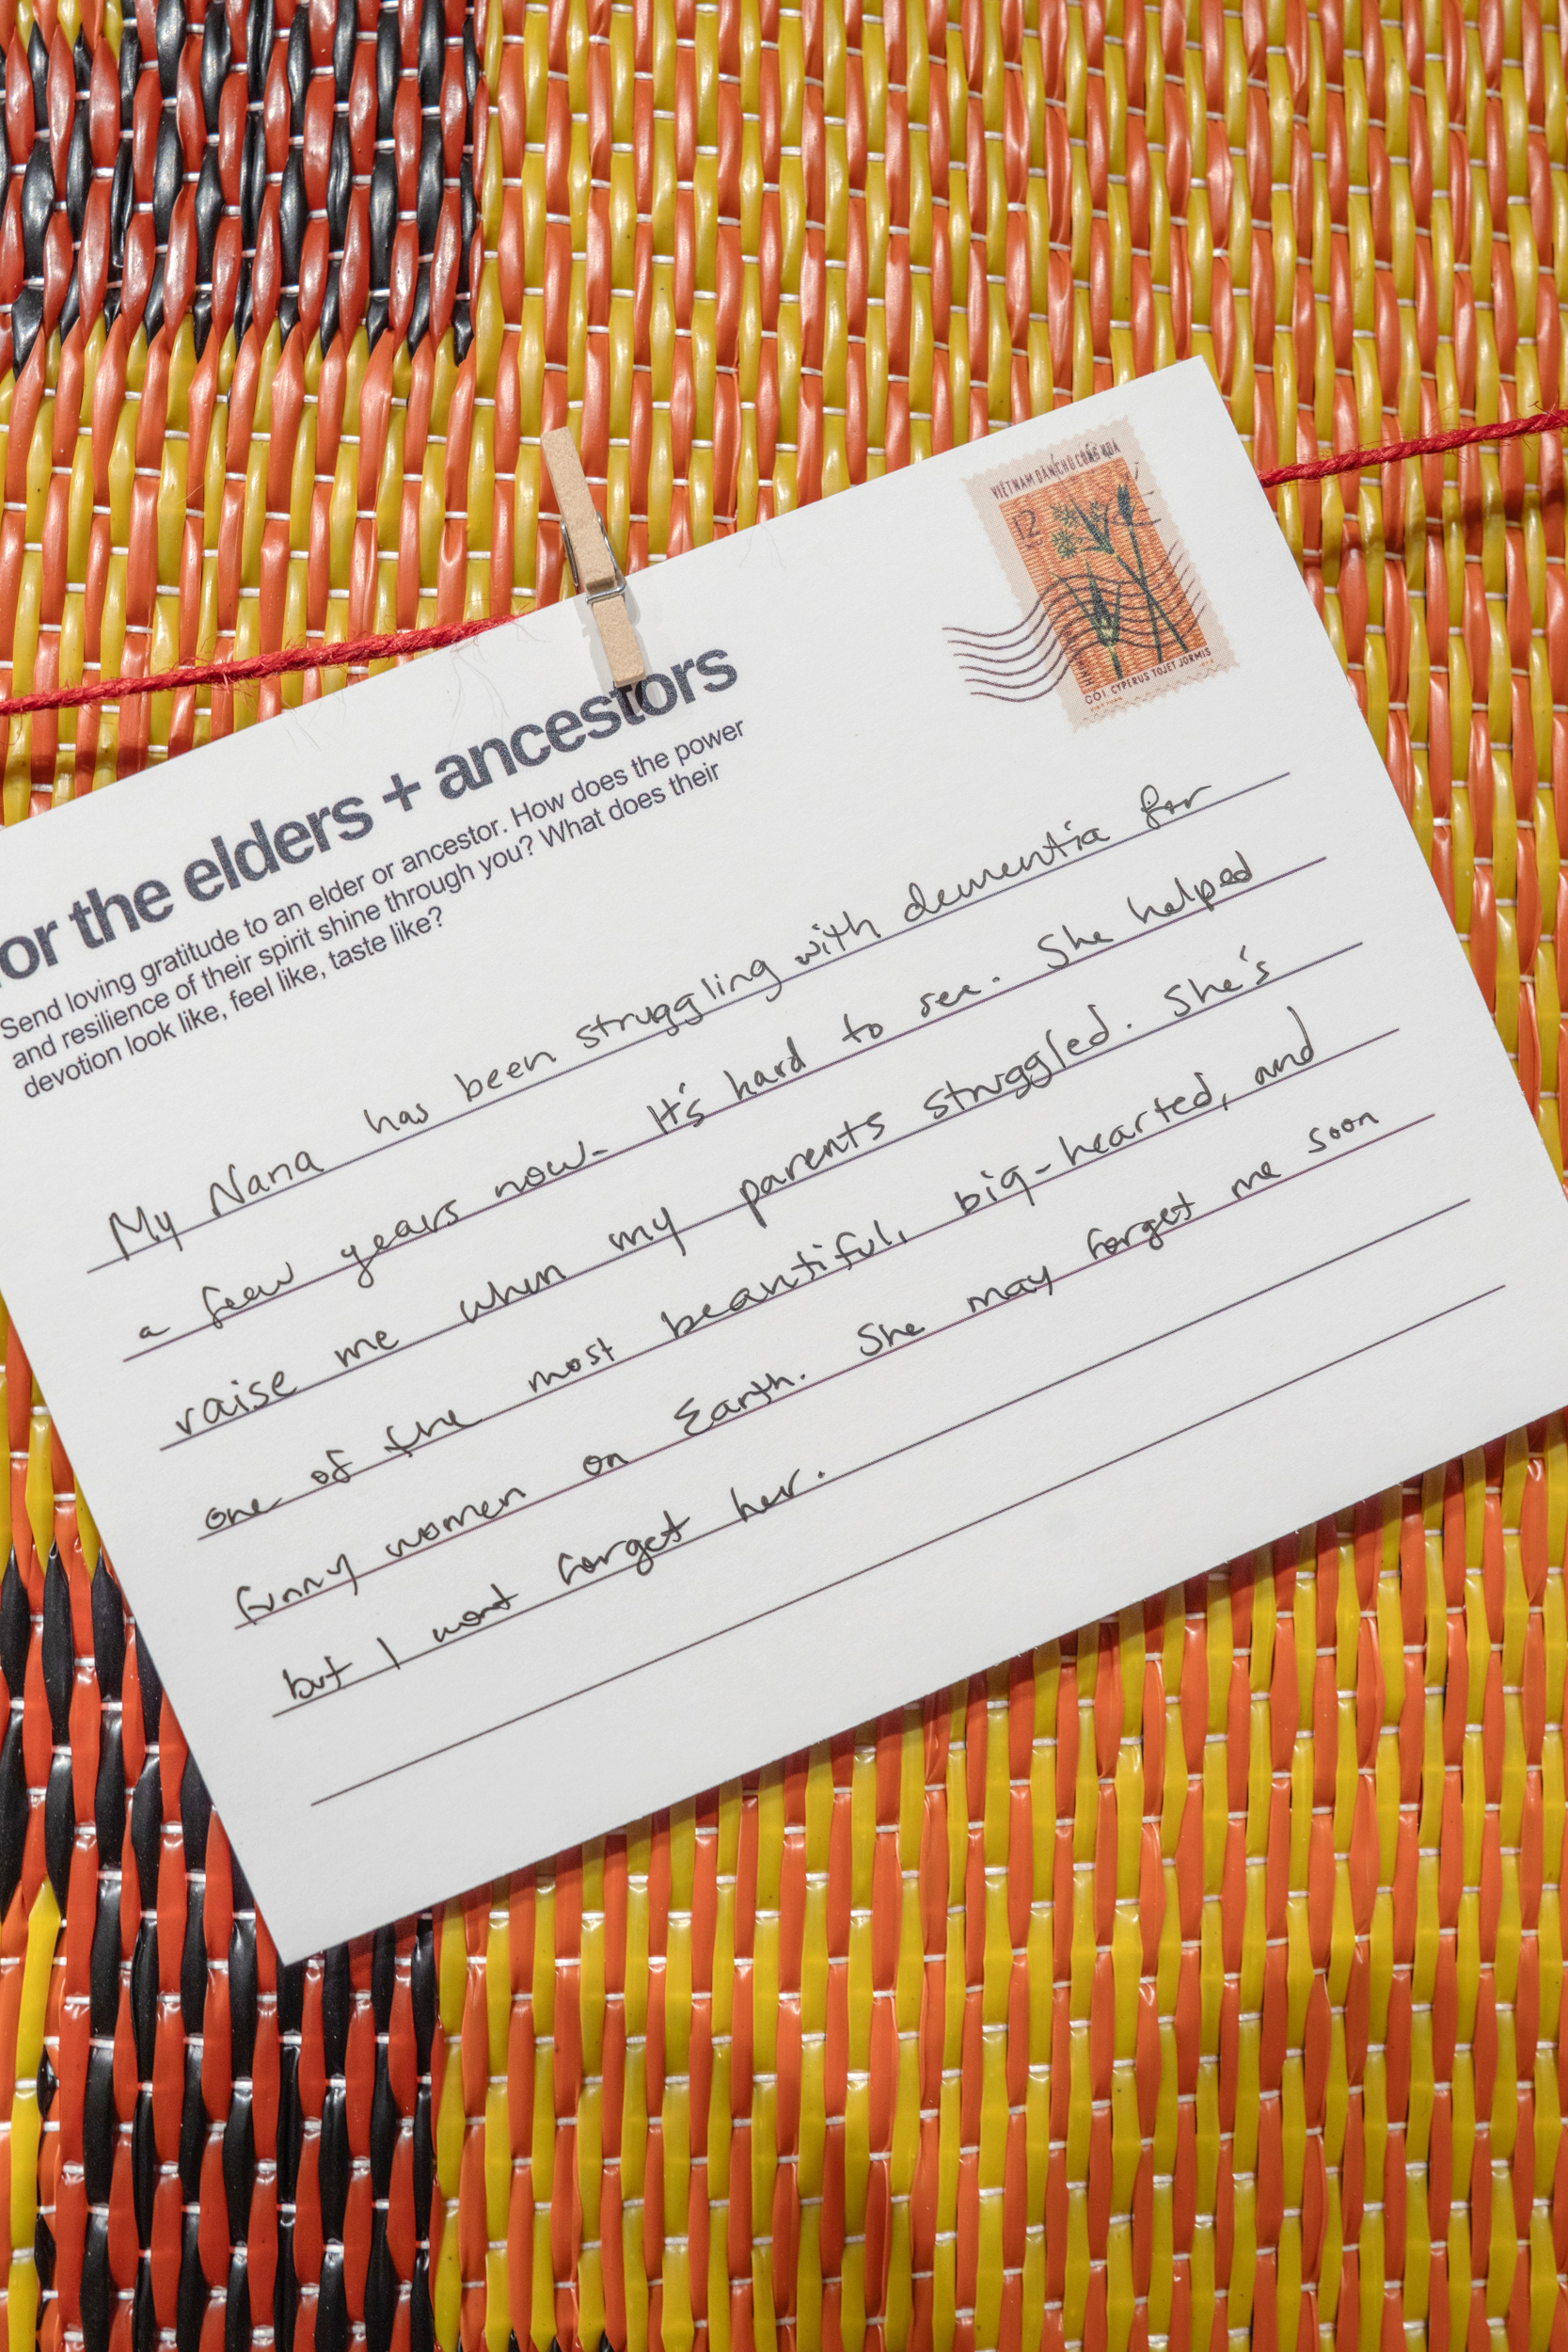 VIETNAM DÂN CHỦ CỘNG HÒA
12
CÓI. CYPERUS TOJET JORMIS
or the elders + ancestors
Send loving gratitude to an elder or ancestor. How does the power
and resilience of their spirit shine through you? What does their
devotion look like, feel like, taste like?
My Nana has been struggling with dementia for
a few years now. It's hard to see. She helped
raise me when my parents struggled. She's
one of the most beautiful, big-hearted, and
funny women on Earth. She may forget me soon
but I wont forget her.